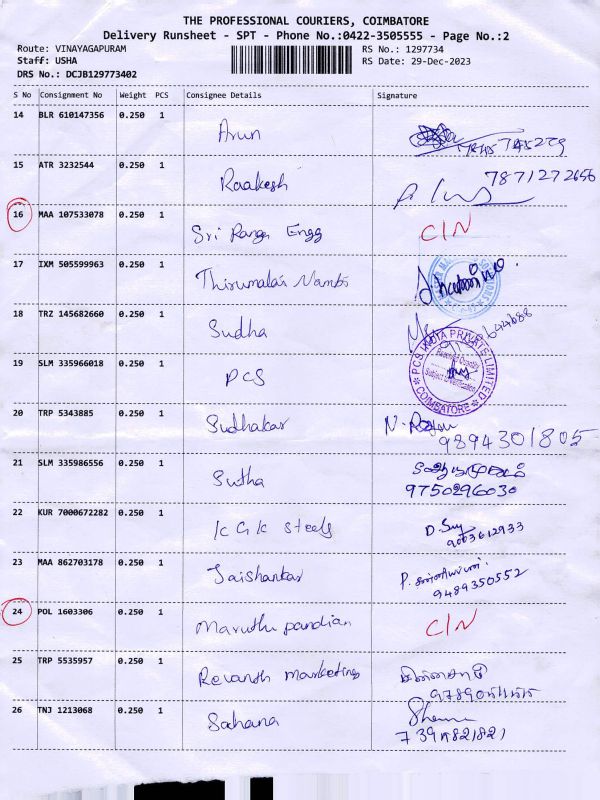 THE PROFESSIONAL COURIERS, COIMBATORE
Delivery Runsheet - SPT - Phone No.:0422-3505555 - Page No.:2
Route: VINAYAGAPURAM RS No.: 1297734
Staff: USHA RS Date: 29-Dec-2023
DRS No.: DCJB129773402
S No Consignment No Weight PCS Consignee Details Signature
14 BLR 610147356 0.250 1 Arun
15 ATR 3232544 0.250 1 Raakesh 7871272656
16 MAA 107533078 0.250 1 Sri Ranga Engg C/N
17 IXM 505599963 0.250 1 Thirumalai Nambi
18 TRZ 145682660 0.250 1 Sudha
19 SLM 335966018 0.250 1 PCS
PCS INDIA PRIVATE LIMITED
COIMBATORE
20 TRP 5343885 0.250 1 Sudhakar N.
9894301805
21 SLM 335986556 0.250 1 Sutha
9750296030
22 KUR 7000672282 0.250 1 KGK Steels
9003612933
23 MAA 862703178 0.250 1 Jaishankar P.
9489350552
24 POL 1603306 0.250 1 Maruthu pandian C/N
25 TRP 5535957 0.250 1 Revanth marketing
26 TNJ 1213068 0.250 1 Sahana